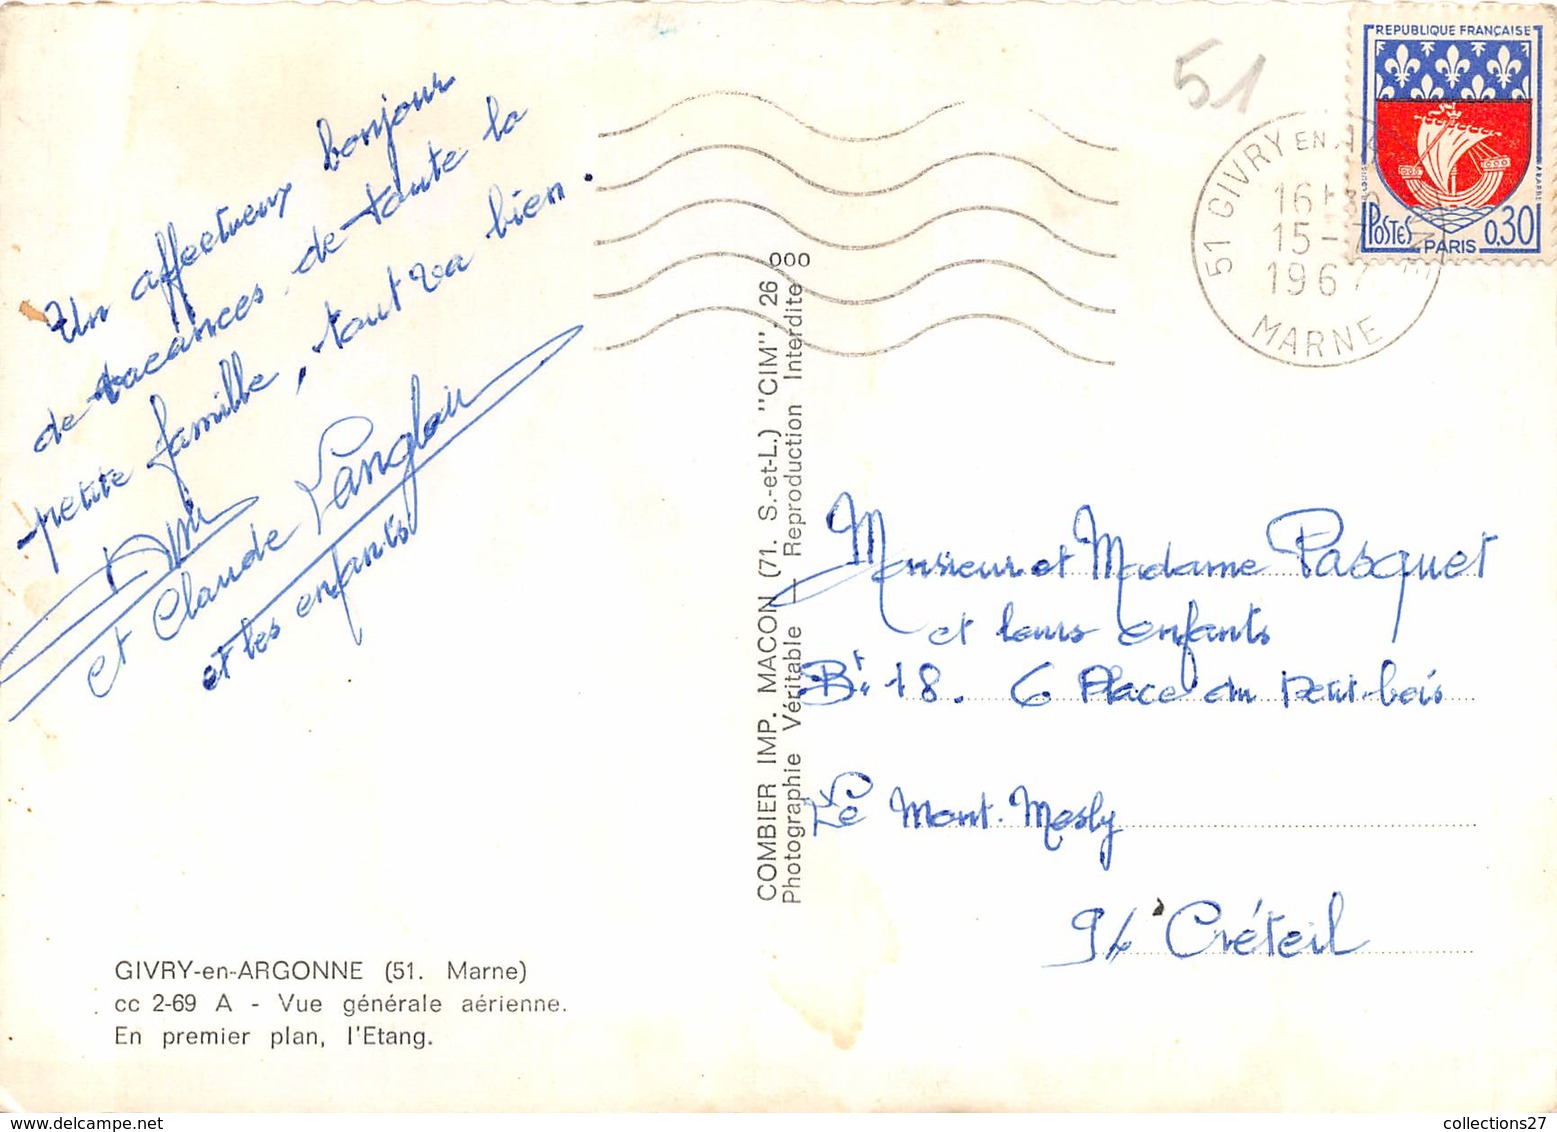 Un affectueux bonjour
de vacances de toute la
petite famille, tout va bien.
et Claude Langlois
et les enfants
GIVRY-en-ARGONNE (51. Marne)
cc 2-69 A - Vue générale aérienne.
En premier plan, l'Etang.
COMBIER IMP. MACON (71. S.-et-L.) "CIM" 26
Photographie Véritable — Reproduction Interdite
51
51 GIVRY EN
16H30
15-7
1967
MARNE
REPUBLIQUE FRANÇAISE
POSTES PARIS 0,30
Monsieur et Madame Pasquet
et leurs enfants
Bt 18. 6 Place du Petit-bois
Le Mont-Mesly
94 Créteil
collections27